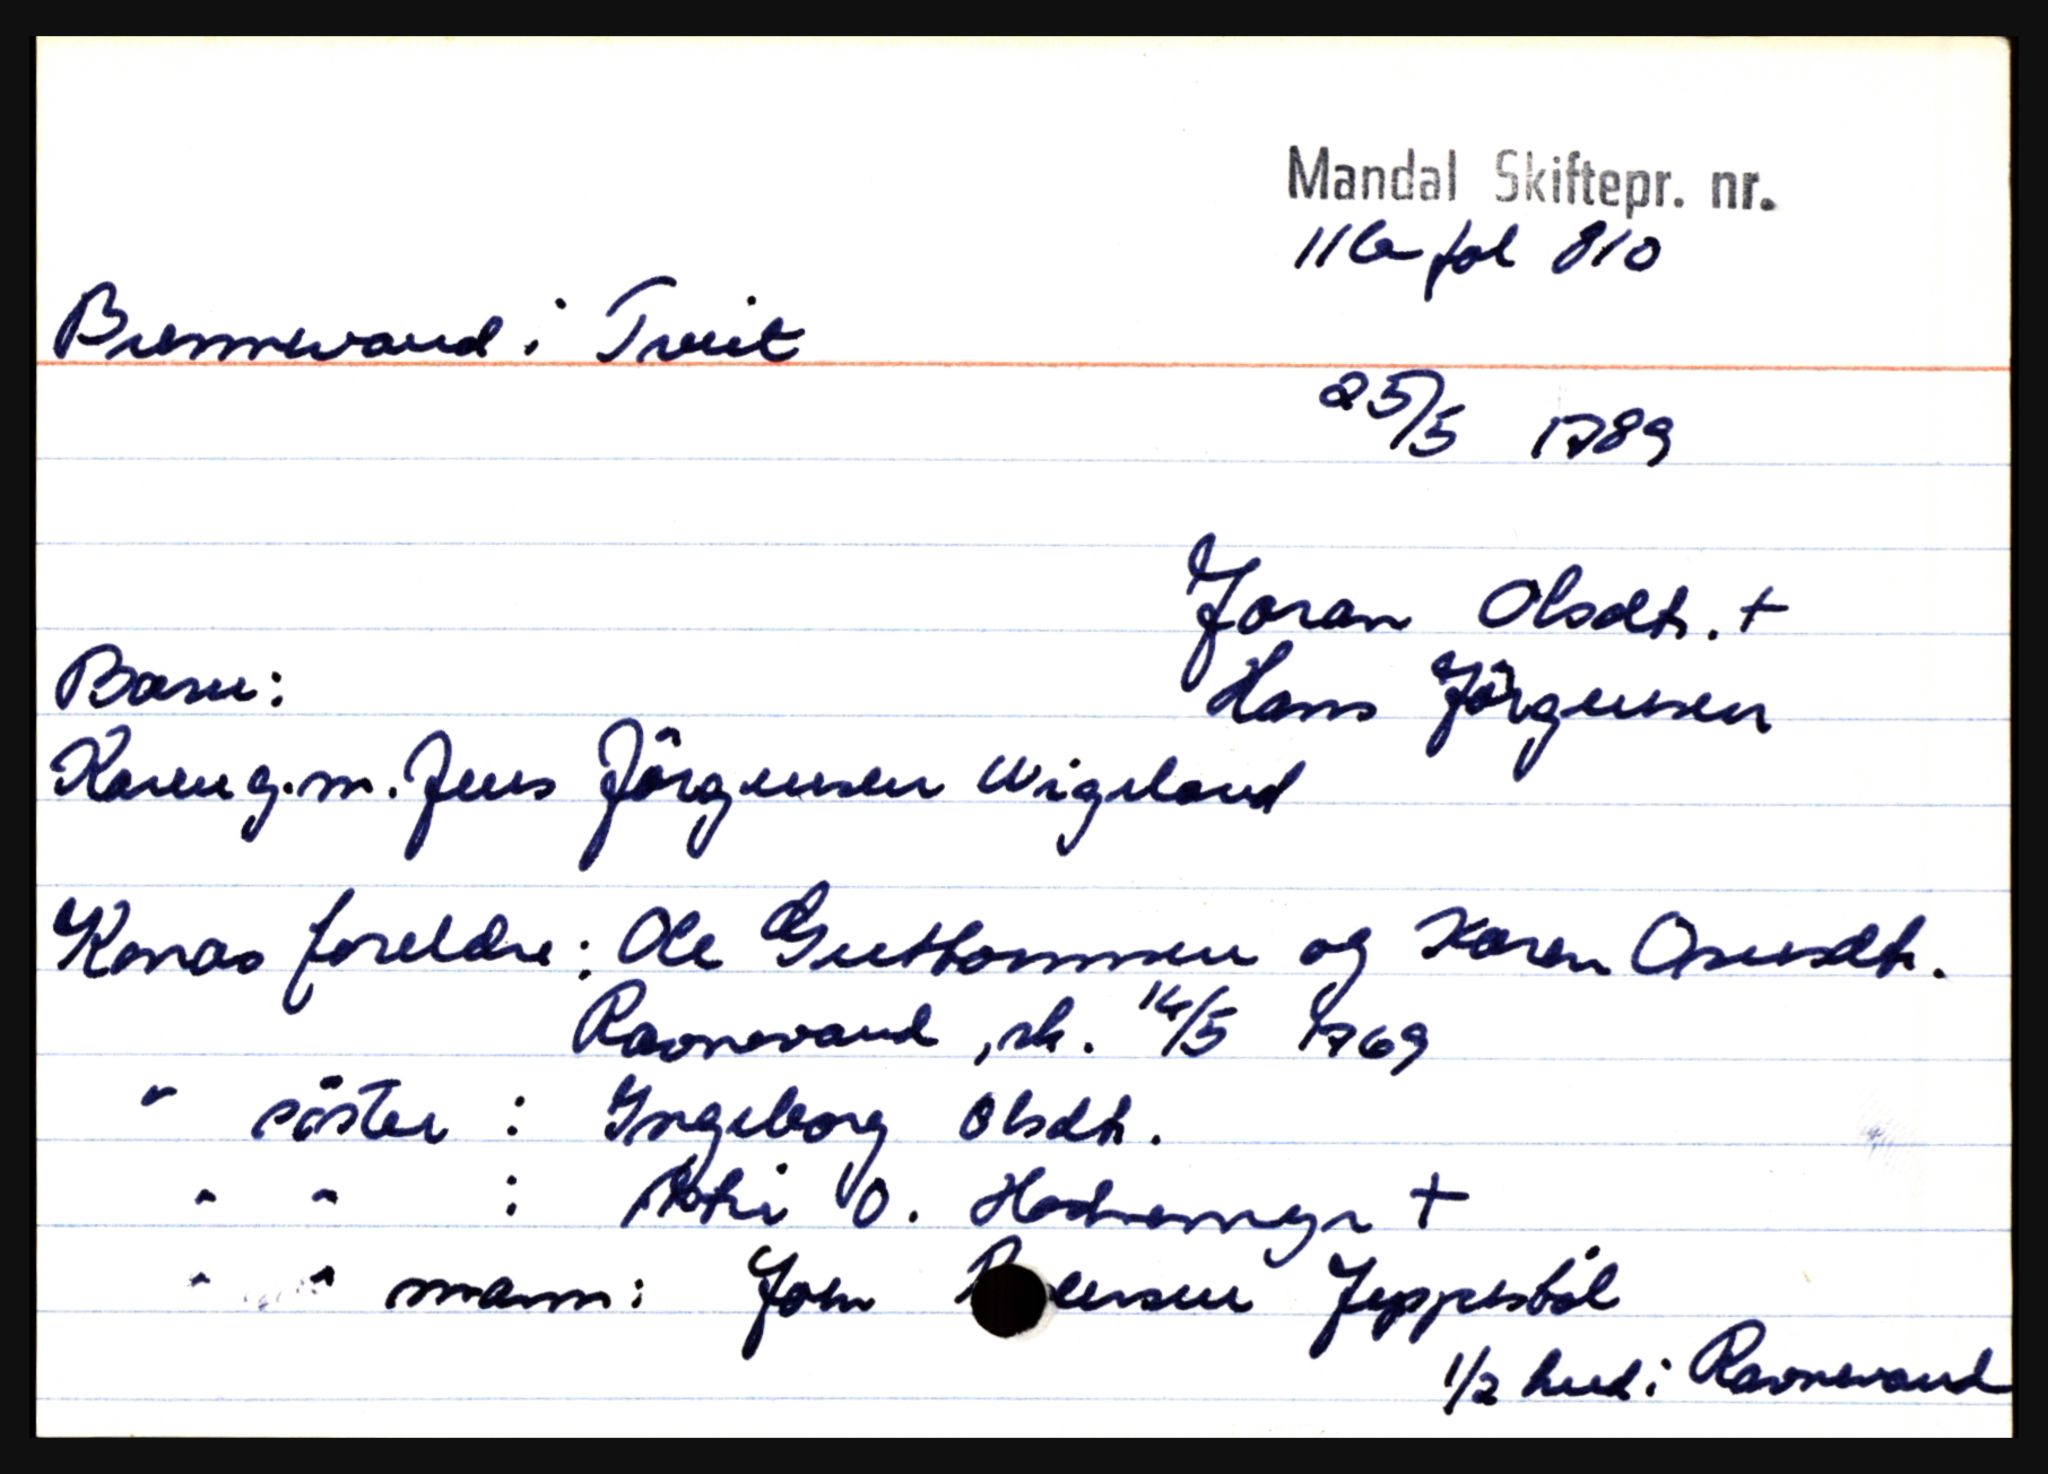 Mandal Skiftepr. nr.
11b fol 810
Brennevand i Tveit
25/5 1789
Joran Olsdtr. +
Barn:
Hans Jörgensen
Karen g.m. Jens Jörgensen Wigeland
Konas foreldre: Ole Guttormsen og Karen Osuldsdtr.
Ravnevand, sk. 14/5 1769
" söster : Ingeborg Olsdtr.
" " : O. Hodnemyr +
" " mann: John Jeppestöl
1/2 hud i Ravnevand